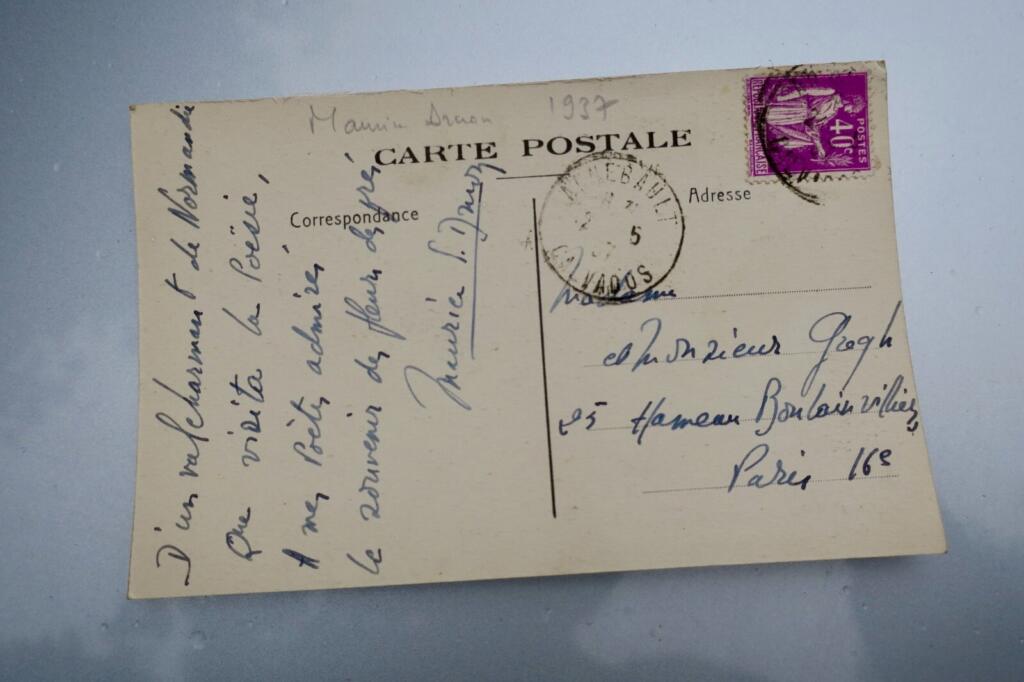 Maurice Druon 1937
CARTE POSTALE
Correspondance
Adresse
POSTES
40c
ANNEBAULT
5
CALVADOS
D'un val charmant de Normandie
Que visita la Poësie,
A mes Poètes admirés
le souvenir des fleurs des prés
Maurice S. Druon
Madame
et Monsieur Gregh
25 Hameau Boulainvilliers
Paris 16e